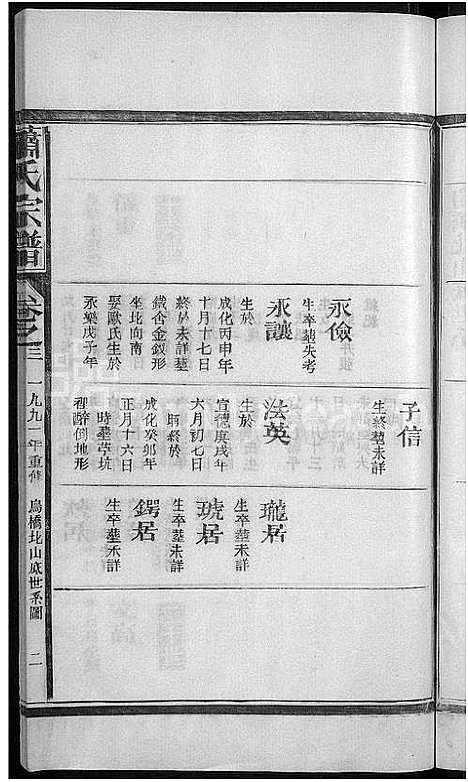 永儉
生卒塟失考
永讓
生於
成化丙申年
十月十七日
終於未詳塟
鐵峇金釵形
坐北向南
娶歐氏生於
永樂戊子年
子信
生終塟未詳
法英
生於
宣德庚戌年
六月初七日
時終於
成化癸卯年
正月十六日
時塟草坑
裡醉倒地形
瓏居
生卒塟未詳
琥居
生卒塟未詳
鍔居
生卒塟未詳
蕭氏宗譜
卷之三
一九九一年重修
烏橋北山底世系圖
二